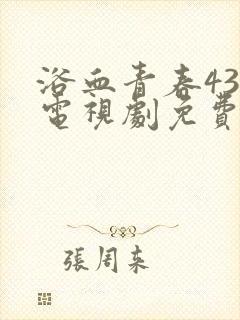 浴血青春43
電視劇免費
張周來